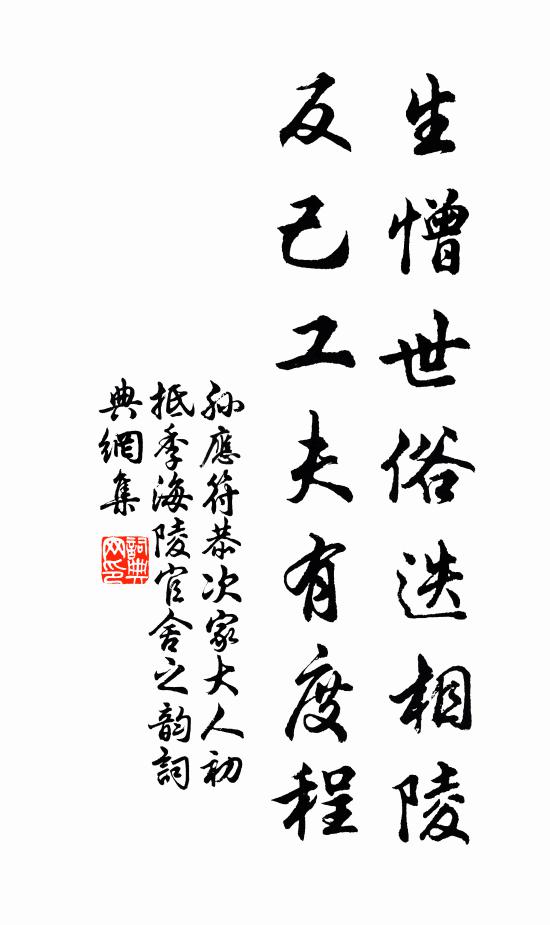 生憎世俗迭相陵
反己工夫有度程
孙應符恭次家大人初
抵季海陵官舍之韵詞
典網集
詞典
网印